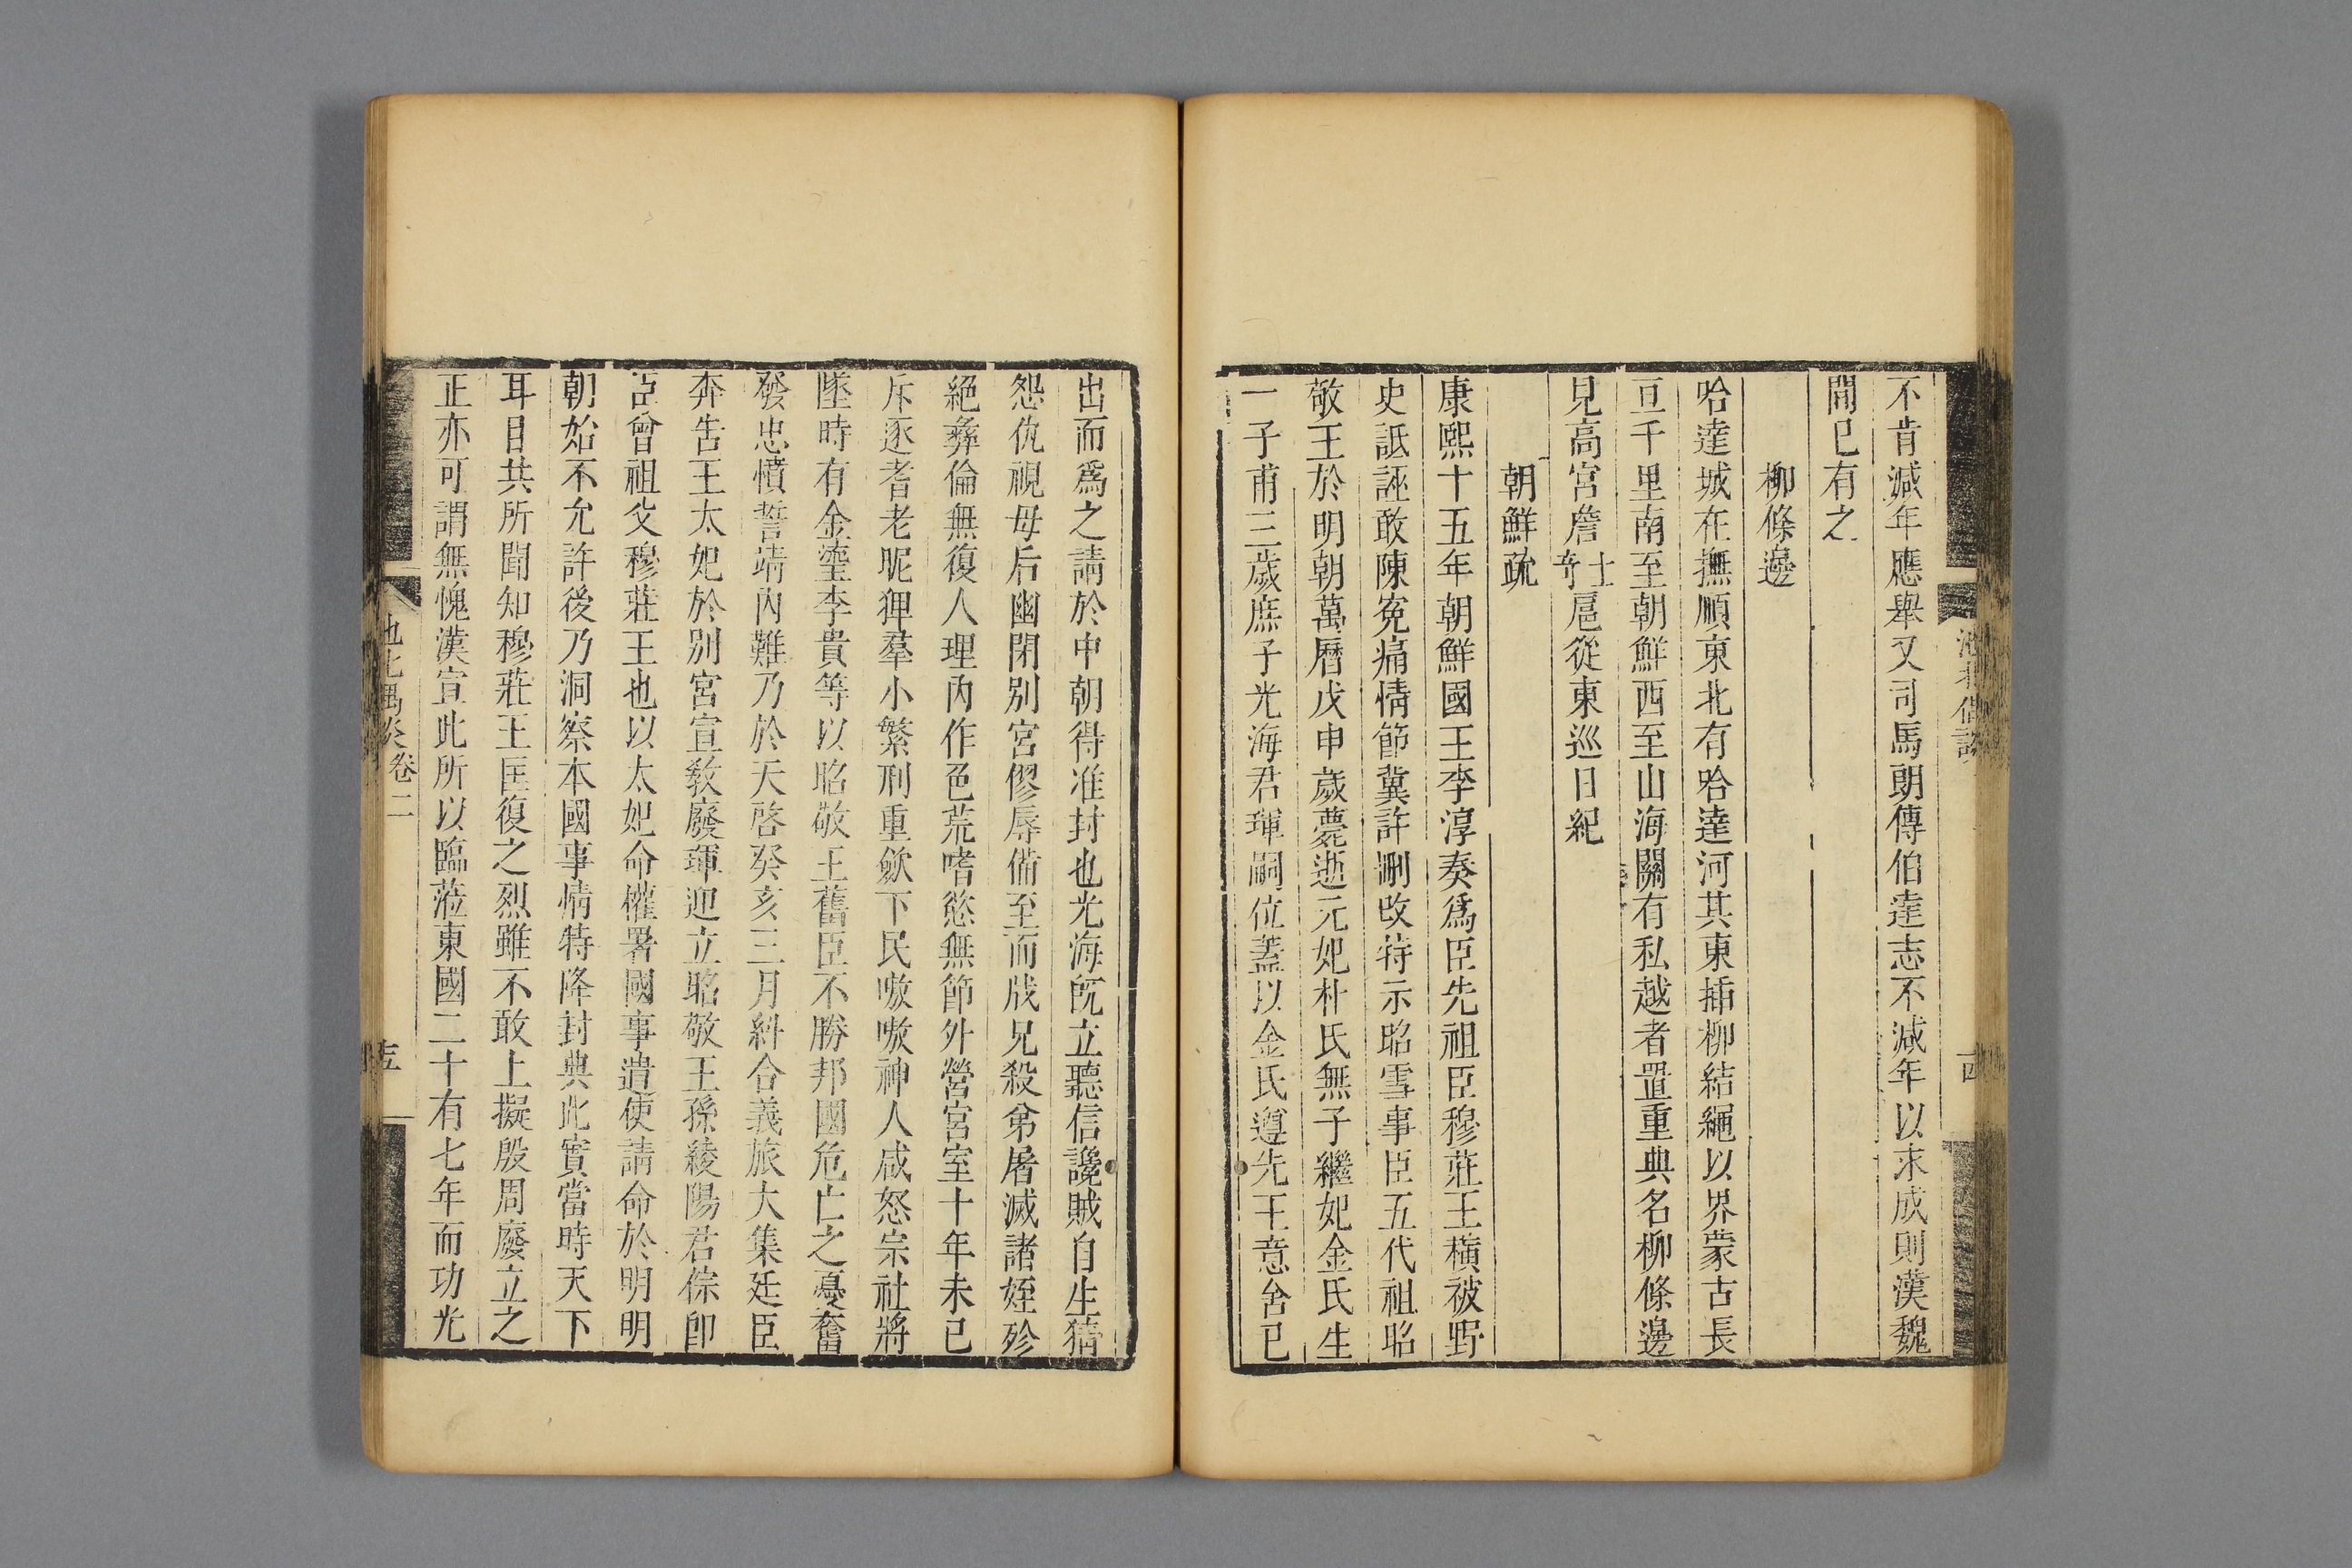 不肯減年應舉又司馬朗傳伯達志不減年以求成則漢魏
間已有之
柳條邊
哈達城在撫順東北有哈達河其東插柳結繩以界蒙古長
亘千里南至朝鮮西至山海關有私越者置重典名柳條邊
見高宮詹士奇扈從東巡日紀
朝鮮疏
康熙十五年朝鮮國王李淳奏爲臣先祖臣穆莊王橫被野
史詆誣敢陳寃痛情節冀許刪改特示昭雪事臣五代祖昭
敬王於明朝萬曆戊申歲薨逝元妃朴氏無子繼妃金氏生
一子甫三歲庶子光海君琿嗣位蓋以金氏遵先王意舍已
出而爲之請於中朝得准封也光海旣立聽信讒賊自生猜
怨仇視母后幽閉別宮僇辱備至而戕兄殺弟屠滅諸姪殄
絕彝倫無復人理內作色荒嗜慾無節外營宮室十年未已
斥逐耆老昵狎羣小繁刑重歛下民嗷嗷神人咸怒宗社將
墜時有金瑬李貴等以昭敬王舊臣不勝邦國危亡之憂奮
發忠憤誓靖內難乃於天啓癸亥三月糾合義旅大集廷臣
奔告王太妃於別宮宣敎廢琿迎立昭敬王孫綾陽君倧卽
臣曾祖父穆莊王也以太妃命權署國事遣使請命於明明
朝始不允許後乃洞察本國事情特降封典此實當時天下
耳目共所聞知穆莊王匡復之烈雖不敢上擬殷周廢立之
正亦可謂無愧漢宣此所以臨蒞東國二十有七年而功光
卷二